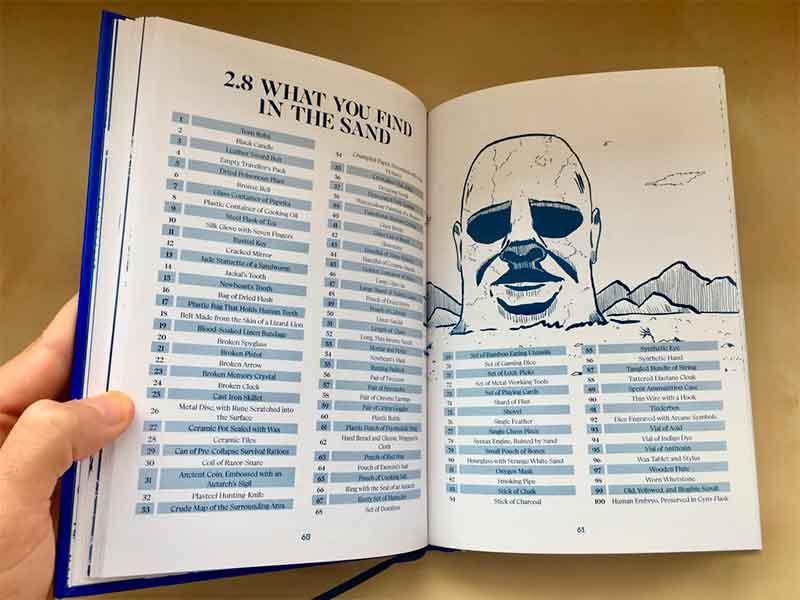 2.8 WHAT YOU FIND
IN THE SAND
1 Torn Robe
2 Black Candle
3 Leather Sword Belt
4 Empty Traveller's Pack
5 Dried Poisonous Plant
6 Bronze Bell
7 Glass Container of Paprika
8 Plastic Container of Cooking Oil
9 Steel Flask of Tea
10 Silk Glove with Seven Fingers
11 Rusted Key
12 Cracked Mirror
13 Jade Statuette of a Sandworm
14 Jackal's Tooth
15 Newbeast's Tooth
16 Bag of Dried Flesh
17 Plastic Box That Holds Human Teeth
18 Belt Made from the Skin of a Lizard Lion
19 Blood-Soaked Linen Bandage
20 Broken Spyglass
21 Broken Pistol
22 Broken Arrow
23 Broken Memory Crystal
24 Broken Clock
25 Cast Iron Skillet
26 Metal Disc, with Rune Scratched into
the Surface
27 Ceramic Pot Sealed with Wax
28 Ceramic Tiles
29 Can of Pre-Collapse Survival Rations
30 Coil of Razor-Snare
31 Ancient Coin, Embossed with an
Autarch's Sigil
32 Plasteel Hunting-Knife
33 Crude Map of the Surrounding Area
34
35
36
37
38
39
40
41
42
43
44
45
46
47
48
49 Pouch of
50 Pouch of
51
52
53 Mortar and Pestle
54 Newbeast's Skull
55
56 Pair of Tweezers
57 Pair of
58 Pair of Chrome Earrings
59 Pair of Goggles
60 Plastic Bottle
61 Plastic Pouch of
62 Hard Bread and Cheese, Wrapped in
Cloth
63 Pouch of Red Wine
64 Pouch of Exorcist's Salt
65 Pouch of Cooking Salt
66 Ring with the Seal of an Autarch
67 Rusty Set of Manacles
68 Set of Dominoes
60
69 Set of Bamboo Eating Utensils
70 Set of Gaming Dice
71 Set of Lock-Picks
72 Set of Metal Working Tools
73 Set of Playing Cards
74 Shard of Flint
75 Shovel
76 Single Feather
77 Single Chess Piece
78 Syntax Engine, Ruined by Sand
79 Small Pouch of Bones
80 Hourglass with Strange White Sand
81 Oxygen Mask
82 Smoking Pipe
83 Stick of Chalk
84 Stick of Charcoal
85 Synthetic Eye
86 Synthetic Hand
87 Tangled Bundle of String
88 Tattered Elastane Cloak
89 Spent Ammunition Case
90 Thin Wire with a Hook
91 Tinderbox
92 Dice Engraved with Arcane Symbols
93 Vial of Acid
94 Vial of Indigo Dye
95 Vial of Antitoxin
96 Wax Tablet and Stylus
97 Wooden Flute
98 Worn Whetstone
99 Old, Yellowed, and Illegible Scroll
100 Human Embryo, Preserved in Cyro-Flask
61